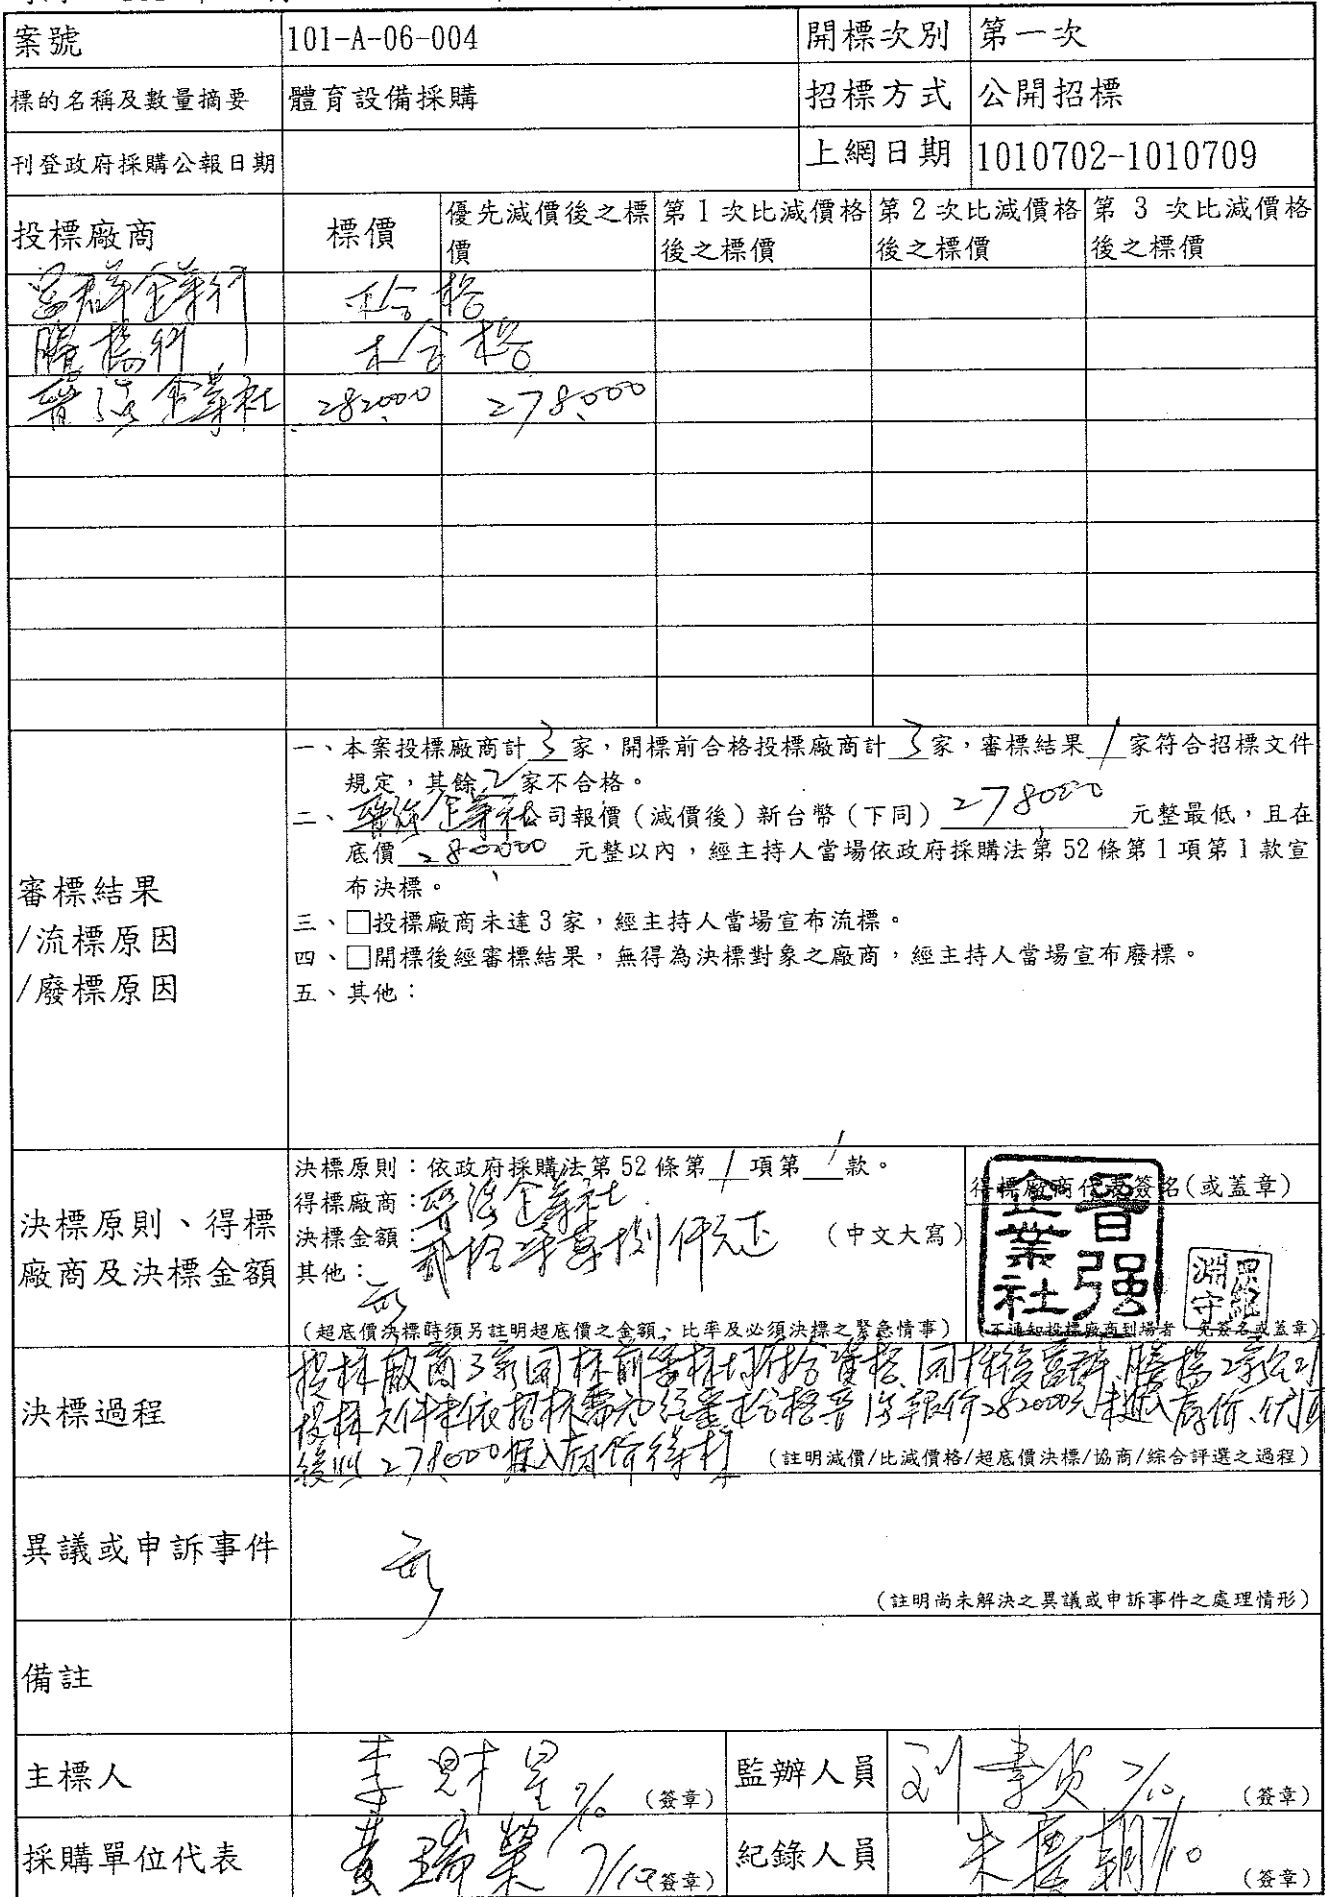 案號 101-A-06-004 開標次別 第一次
標的名稱及數量摘要 體育設備採購 招標方式 公開招標
刊登政府採購公報日期 上網日期 1010702-1010709
投標廠商 標價 優先減價後之標價 第1次比減價格後之標價 第2次比減價格後之標價 第3次比減價格後之標價
企業行 不合格
騰揚行 不合格
晉強企業社 282000 278000
審標結果
/流標原因
/廢標原因
一、本案投標廠商計3家，開標前合格投標廠商計3家，審標結果1家符合招標文件
規定，其餘2家不合格。
二、晉強企業社公司報價（減價後）新台幣（下同）278000元整最低，且在
底價280000元整以內，經主持人當場依政府採購法第52條第1項第1款宣
布決標。
三、□投標廠商未達3家，經主持人當場宣布流標。
四、□開標後經審標結果，無得為決標對象之廠商，經主持人當場宣布廢標。
五、其他：
決標原則、得標
廠商及決標金額
決標原則：依政府採購法第52條第1項第1款。
得標廠商：晉強企業社
決標金額：貳拾柒萬捌仟元正（中文大寫）
其他：
無
（超底價決標時須另註明超底價之金額、比率及必須決標之緊急情事）
得標廠商代表簽名(或蓋章)
晉強
企業社
不通知投標廠商到場者 免簽名或蓋章)
決標過程
投標廠商3家開標前審標均符合資格,開標後 騰揚2家
投標文件未依招標需知 不合格晉強報價282000元未進入底價、優減
後以278000進入底價得標
（註明減價/比減價格/超底價決標/協商/綜合評選之過程）
異議或申訴事件 無
（註明尚未解決之異議或申訴事件之處理情形）
備註
主標人 李財星 7/10 （簽章） 監辦人員 劉 7/10 （簽章）
採購單位代表 黃瑞榮 7/10 （簽章） 紀錄人員 朱慶朝 7/10 （簽章）